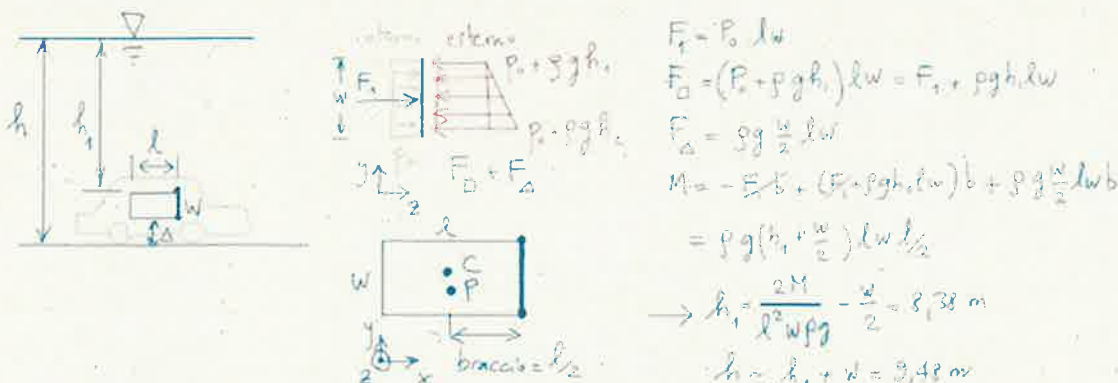 h
h₁
l
W
Δ
interno esterno
w
F₁
p₀ + ρgh₁
p₀ + ρgh₂
p₀
y
z
F□ + F△
l
W
C
P
y
z
x
braccio = l/2
F₁ = P₀ lw
F□ = (P₀ + ρgh₁) lw = F₁ + ρgh₁lw
F△ = ρg w/2 lw
M = - F₁b + (F₁ + ρgh₁lw) b + ρg w/2 lwb
= ρg(h₁ + w/2) lw l/2
→ h₁ = 2M / l²wρg - w/2 = 8,38 m
h = h₁ + w = 9,48 m